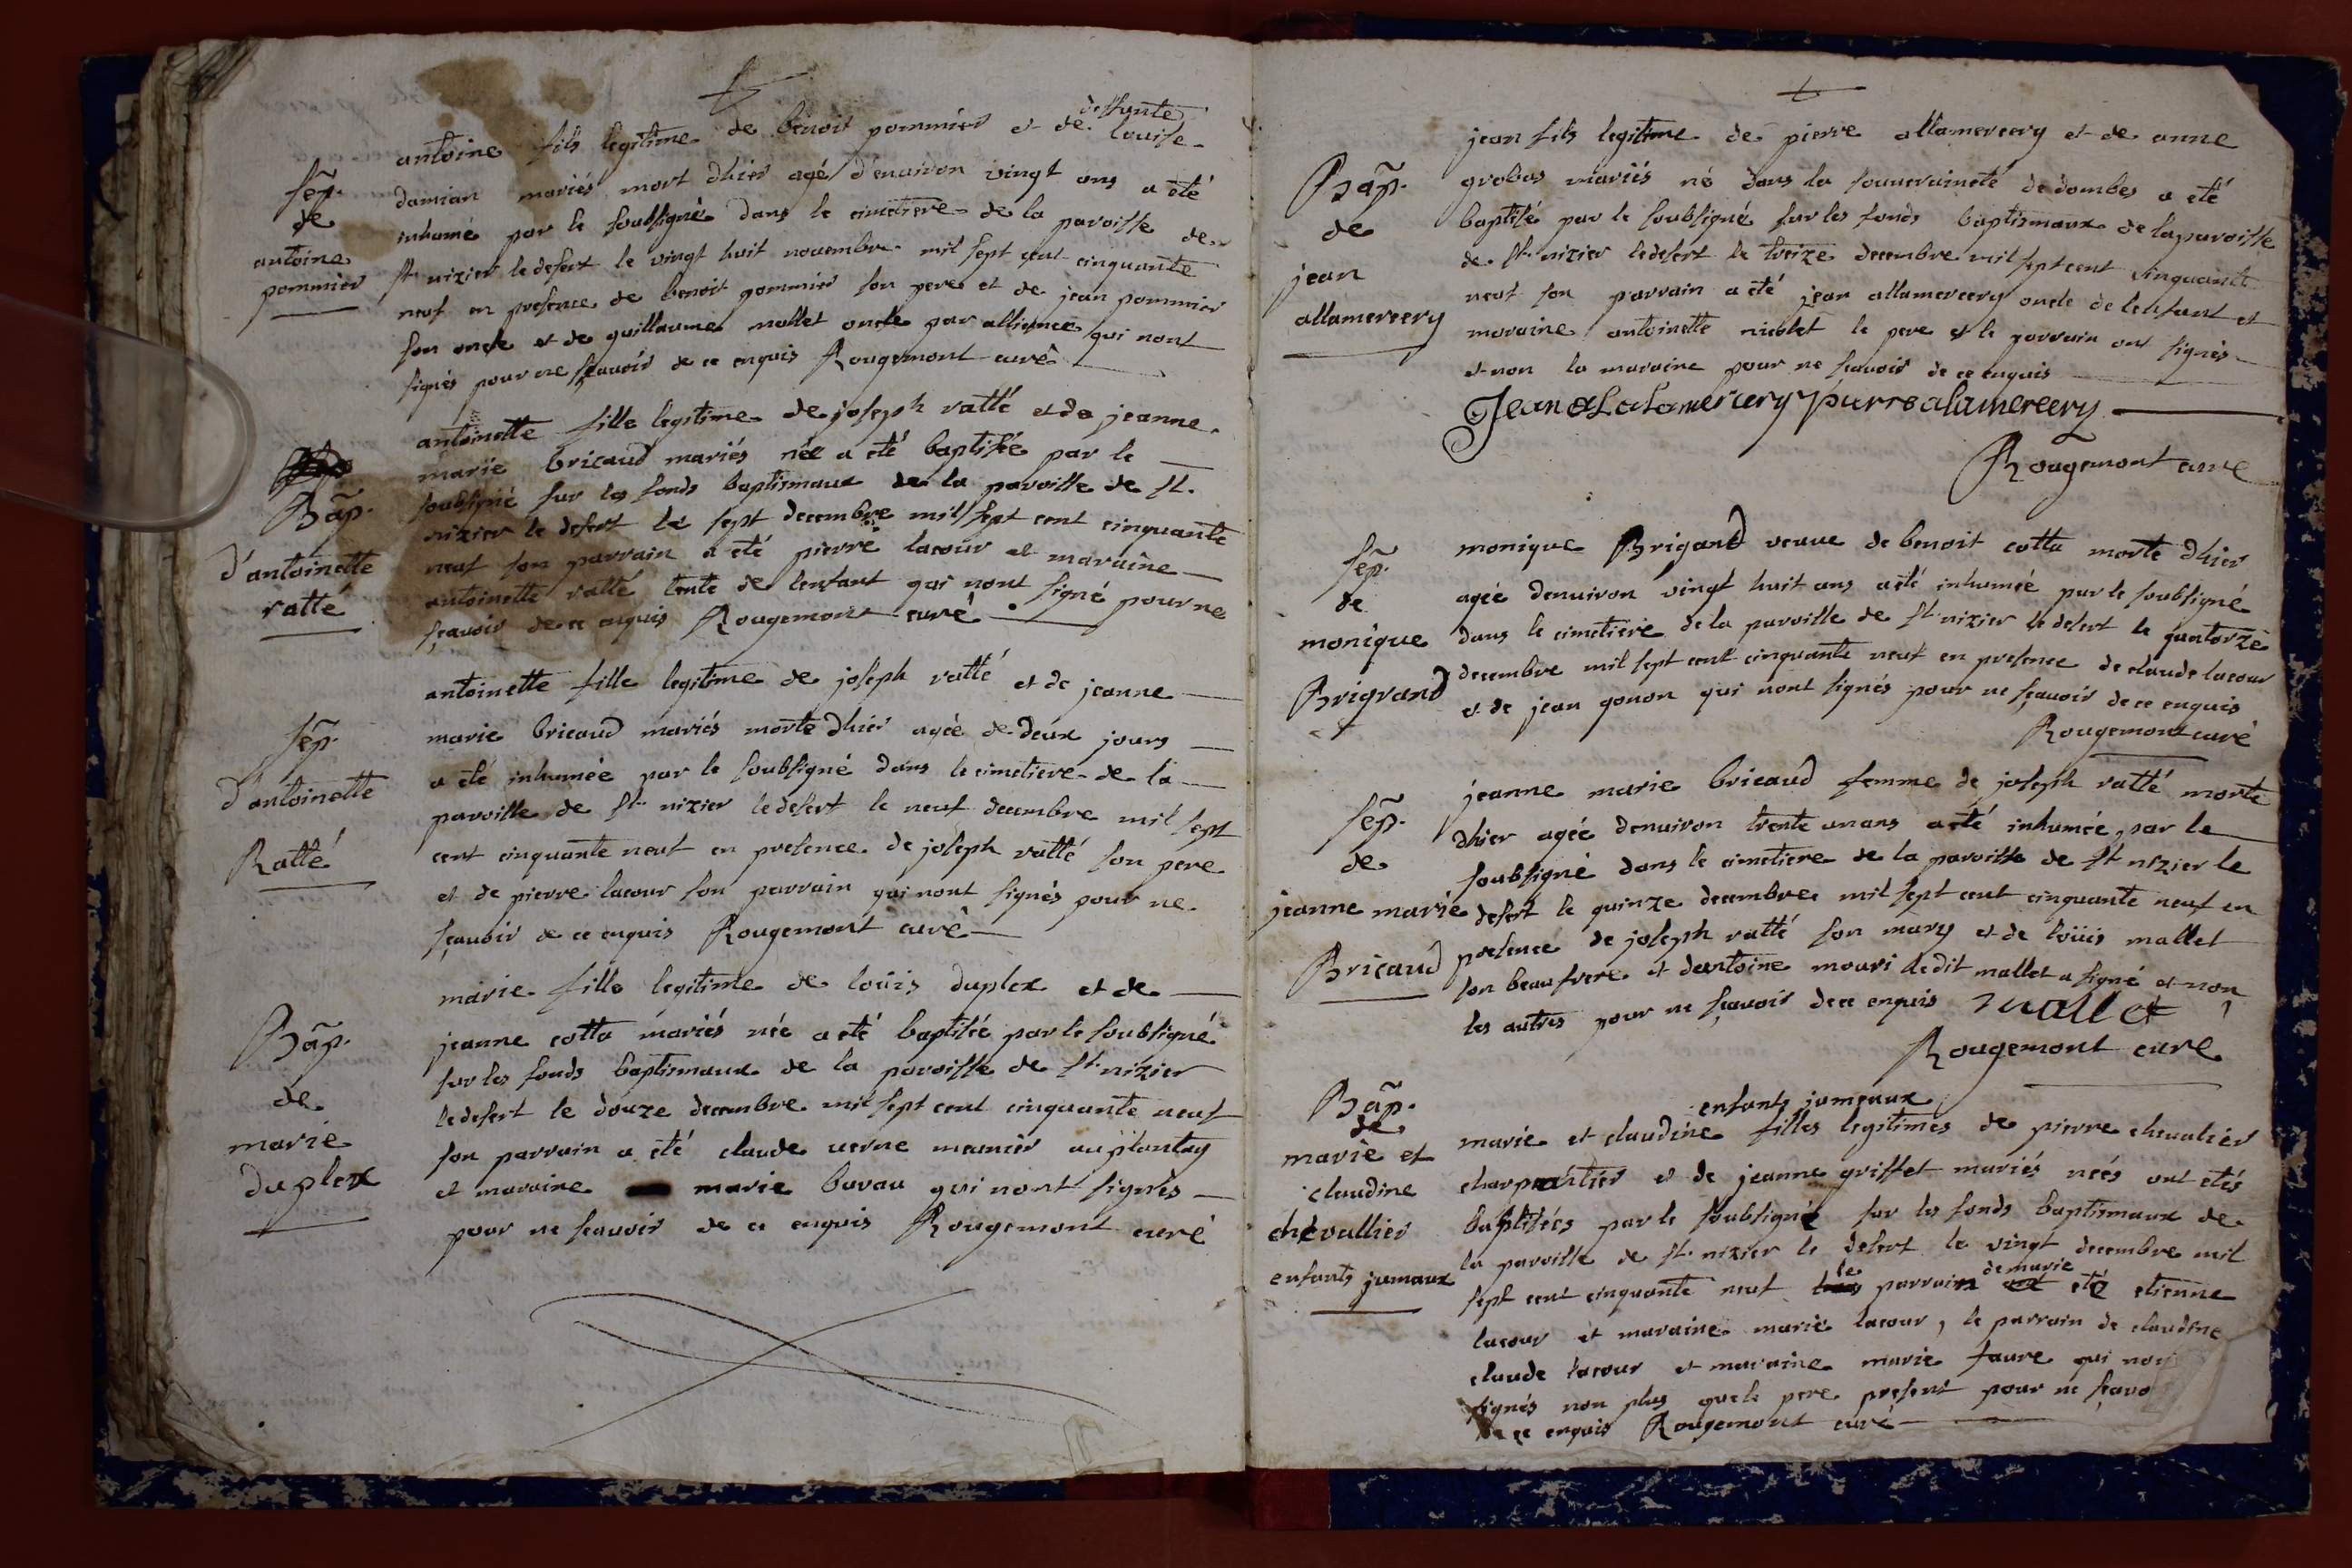 sep̃.
de
antoine
pommier
antoine fils legitime de benoit pommier et de deffunte louise
damian mariés mort dhier agé d'environ vingt ans a été
inhumé par le soubsigné dans le cimetiere de la paroisse de
st nizier le desert le vingt huit novembre mil sept cent cinquante
neuf en presence de benoit pommier son pere et de jean pommier
son oncle et de guillaume mallet oncle par alliance qui nont
signés pour ne sçavoir de ce enquis Rougemont curé
Bãp.
d'antoinette
ratté
antoinette fille legitime de joseph ratté et de jeanne
marie bricaud mariés née a été baptisée par le
soubsigné sur les fonds baptismaux de la paroisse de st.
nizier le desert le sept decembre mil sept cent cinquante
neuf son parrain a été pierre lacour et maraine
antoinette ratté tente de lenfant qui nont signé pour ne
sçavoir de ce enquis Rougemont curé
sep̃.
d'antoinette
Ratté
antoinette fille legitime de joseph ratté et de jeanne
marie bricaud mariés morte dhier agée de deux jours
a été inhumée par le soubsigné dans le cimetiere de la
paroisse de st nizier le desert le neuf decembre mil sept
cent cinquante neuf en presence de joseph ratté son pere
et de pierre lacour son parrain qui nont signés pour ne
sçavoir de ce enquis Rougemont curé
Bãp.
de
marie
duplex
marie fille legitime de loüis duplex et de
jeanne cotta mariés née a été baptisée par le soubsigné
sur les fonds baptismaux de la paroisse de st nizier
le desert le douze decembre mil sept cent cinquante neuf
son parrain a été claude verne meunier au plantay
et maraine marie buvau qui nont signés
pour ne scavoir de ce enquis Rougemont curé
Bãp.
de
jean
allamercery
jean fils legitime de pierre allamercery et de anne
grobas mariés né dans la souveraineté de dombes a été
baptisé par le soubsigné sur les fonds baptismaux de la paroisse
de st nizier le desert le treize decembre mil sept cent cinquante
neuf son parrain a été jean allamercery oncle de lenfant et
maraine antoinette nicolet le pere et le parrain ont signés
et non la maraine pour ne scavoir de ce enquis
Jean alalamercery pierre alamercery
Rougemont curé
sep̃.
de
monique
Brigrand
monique Brigand veuve de benoit cotta morte dhier
agée denviron vingt huit ans a été inhumée par le soubsigné
dans le cimetiere de la paroisse de st nizier le desert le quatorze
decembre mil sept cent cinquante neuf en presence de claude lacour
et de jean gonon qui nont signés pour ne sçavoir de ce enquis
Rougemont curé
sep̃.
de
jeanne marie
Bricaud
jeanne marie bricaud femme de joseph ratté morte
dhier agée denviron trente un ans a été inhumée par le
soubsigné dans le cimetiere de la paroisse de st nizier le
desert le quinze decembre mil sept cent cinquante neuf en
presence de joseph ratté son mary et de loüis mallet
son beau frere et dantoine mouri ledit mallet a signé et non
les autres pour ne sçavoir de ce enquis mallet
Rougemont curé
Bãp.
de
marie et
claudine
chevallier
enfants jumaux
enfants jumeaux
marie et claudine filles legitimes de pierre chevalier
charpentier et de jeanne griffet mariés neés ont etés
baptisées par le soubsigné sur les fonds baptismaux de
la paroisse de st. nizier le desert le vingt decembre mil
sept cent cinquante neuf le parrain de marie eté etienne
lacour et maraine marie lacour, le parrain de claudine
claude lacour et maraine marie faure qui
signés non plus que le pere present pour ne
ce enquis Rougemont curé